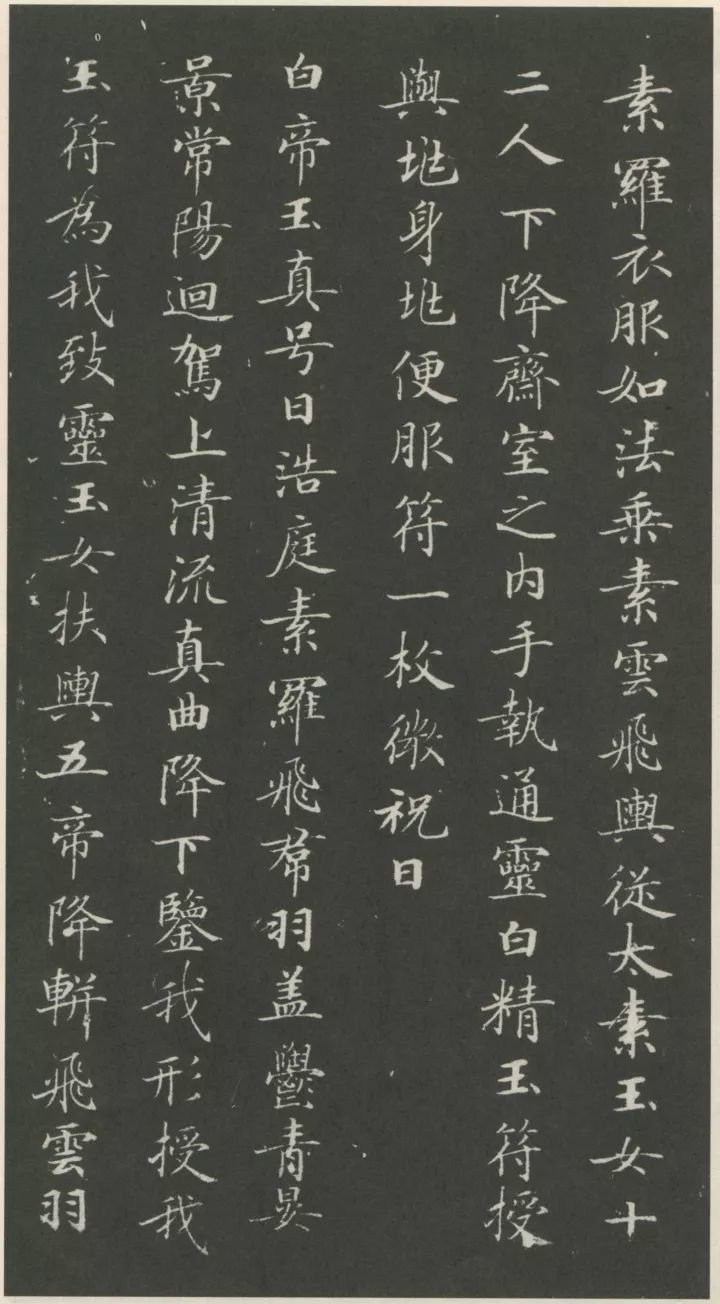 素羅衣服如法乗素雲飛輿従太素玉女十
二人下降齋室之内手執通靈白精玉符授
與地身地便服符一枚微祝曰
白帝玉真号曰浩庭素羅飛帬羽盖鬱青
景常陽迴駕上清流真曲降下鑒我形授我
玉符為我致靈玉女扶輿五帝降軿飛雲羽